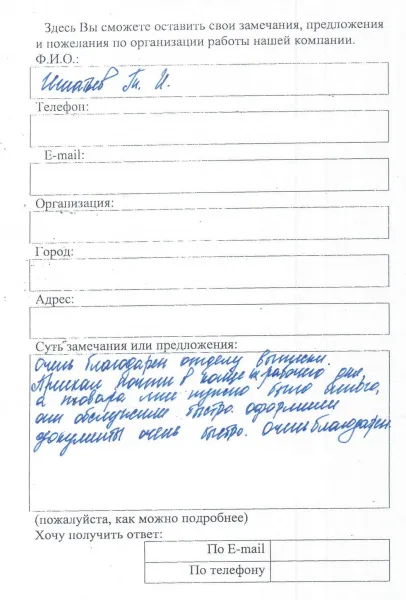 Здесь Вы сможете оставить свои замечания, предложения
и пожелания по организации работы нашей компании.
Ф.И.О.:
Телефон:
E-mail:
Организация:
Город:
Адрес:
Суть замечания или предложения:
Очень благодарен отделу выписки.
Приехал почти в конце рабочего дня,
а товара мне нужно было много,
они обслужили быстро. оформили
документы очень быстро. Очень благодарен.
(пожалуйста, как можно подробнее)
Хочу получить ответ:
По E-mail
По телефону